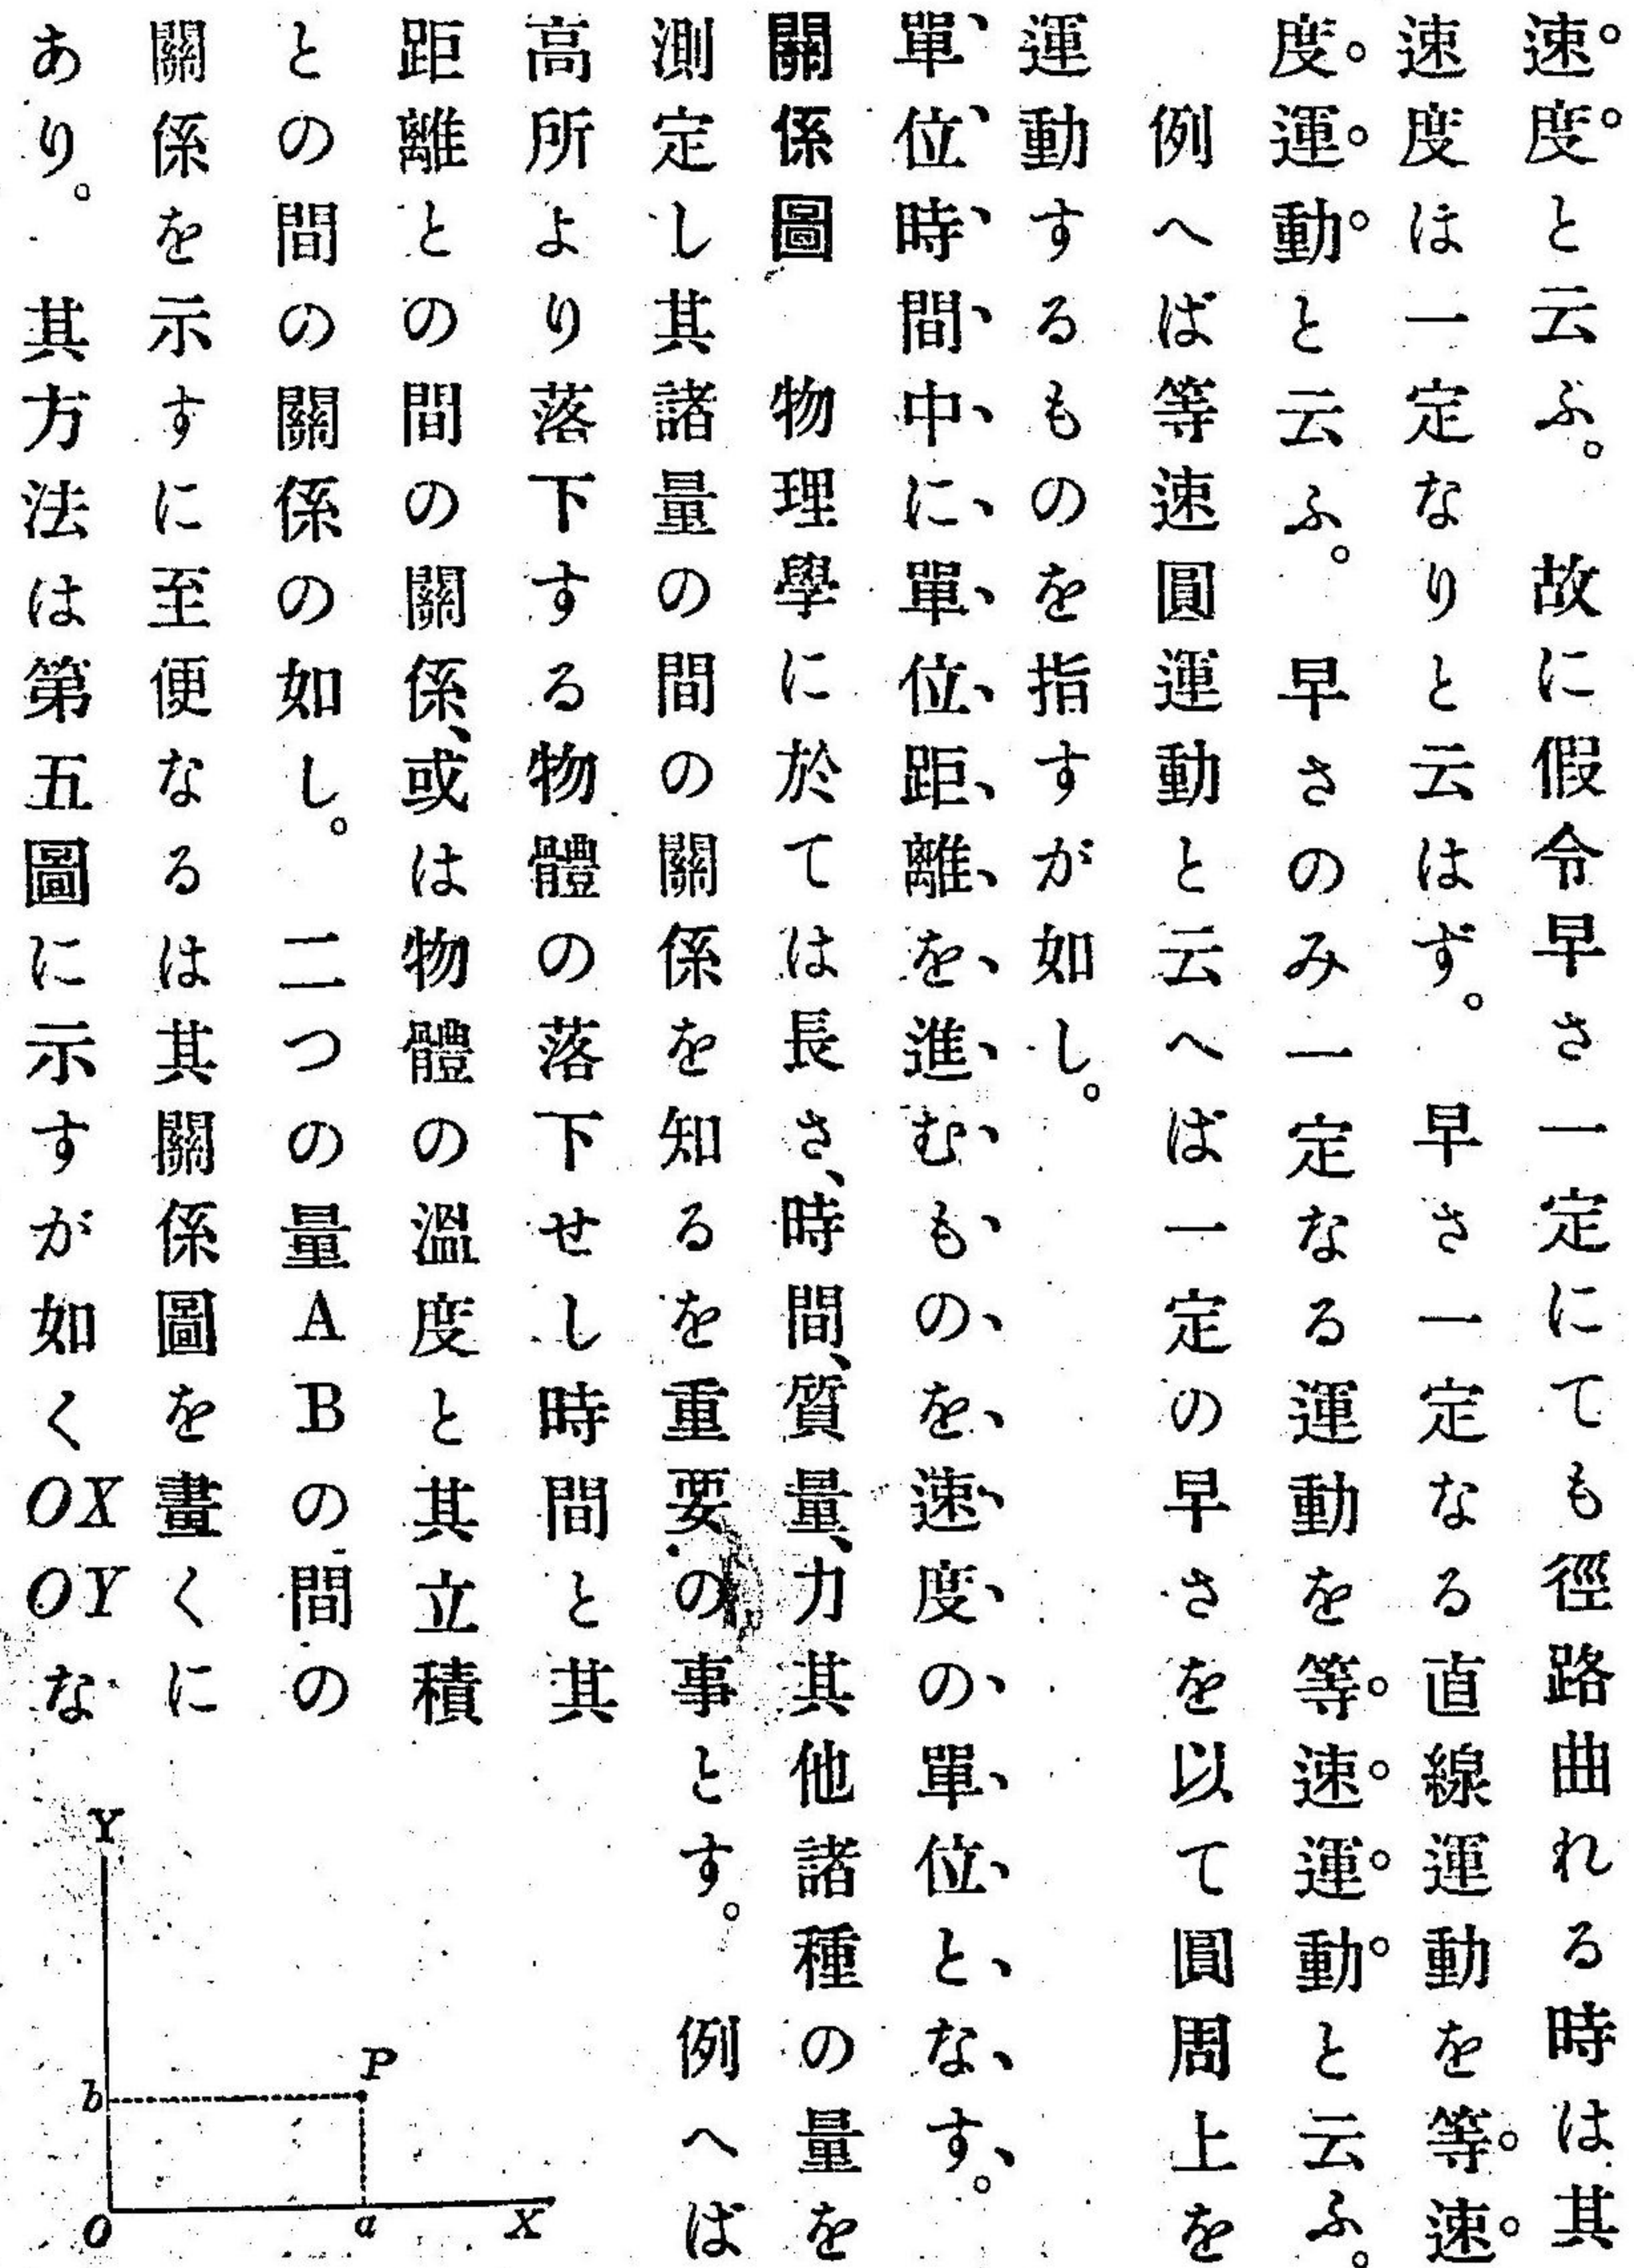 速度と云ふ。　故に假令早さ一定にても徑路曲れる時は其
速度は一定なりと云はず。　早さ一定なる直線運動を等速
度運動と云ふ。　早さのみ一定なる運動を等速運動と云ふ。
例へば等速圓運動と云へば一定の早さを以て圓周上を
運動するものを指すが如し。
單位時間中に單位距離を進むものを速度の單位となす。
關係圖　物理學に於ては長さ、時間、質量、力其他諸種の量を
測定し其諸量の間の關係を知るを重要の事とす。　例へば
高所より落下する物體の落下せし時間と其
距離との間の關係、或は物體の溫度と其立積
との間の關係の如し。　二つの量ABの間の
關係を示すに至便なるは其關係圖を畫くに
あり。　其方法は第五圖に示すが如くOX OYな
Y
P
b
O
a
X